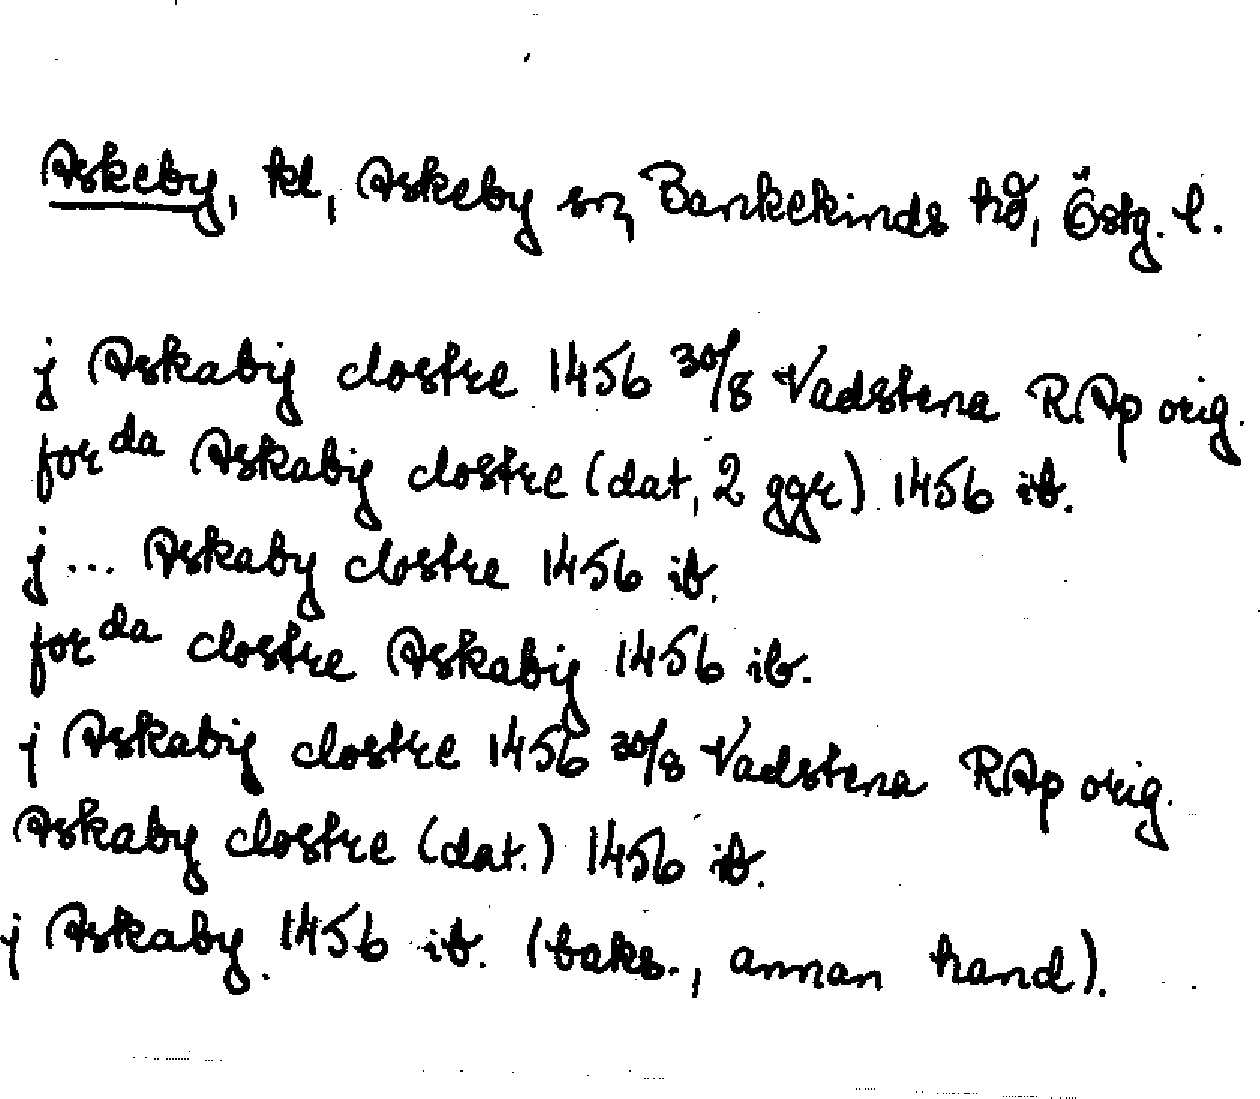 Askeby, kl, Askeby sn, Bankekinds hd, Östg. l.
j Askabij clostre 1456 30/8 Vadstena RAp orig.
for da Askabij clostre (dat, 2 ggr) 1456 ib.
j ... Askaby clostre 1456 ib.
for da clostre Askabij 1456 ib.
j Askabij clostre 1456 30/8 Vadstena RAp orig.
Askaby clostre (dat.) 1456 ib.
j Askaby 1456 ib. (baks., annan hand).